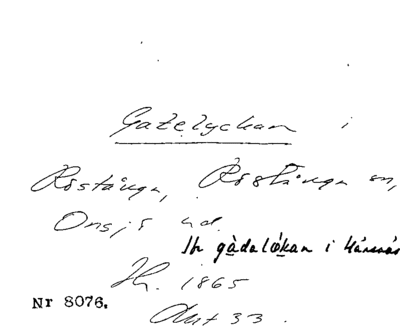 Gatelyckan i
Röstånga, Röstånga sn,
Onsjö hd.
Ih gàdalökan i
Ih. 1865
Nr 8076.
Ant 33.